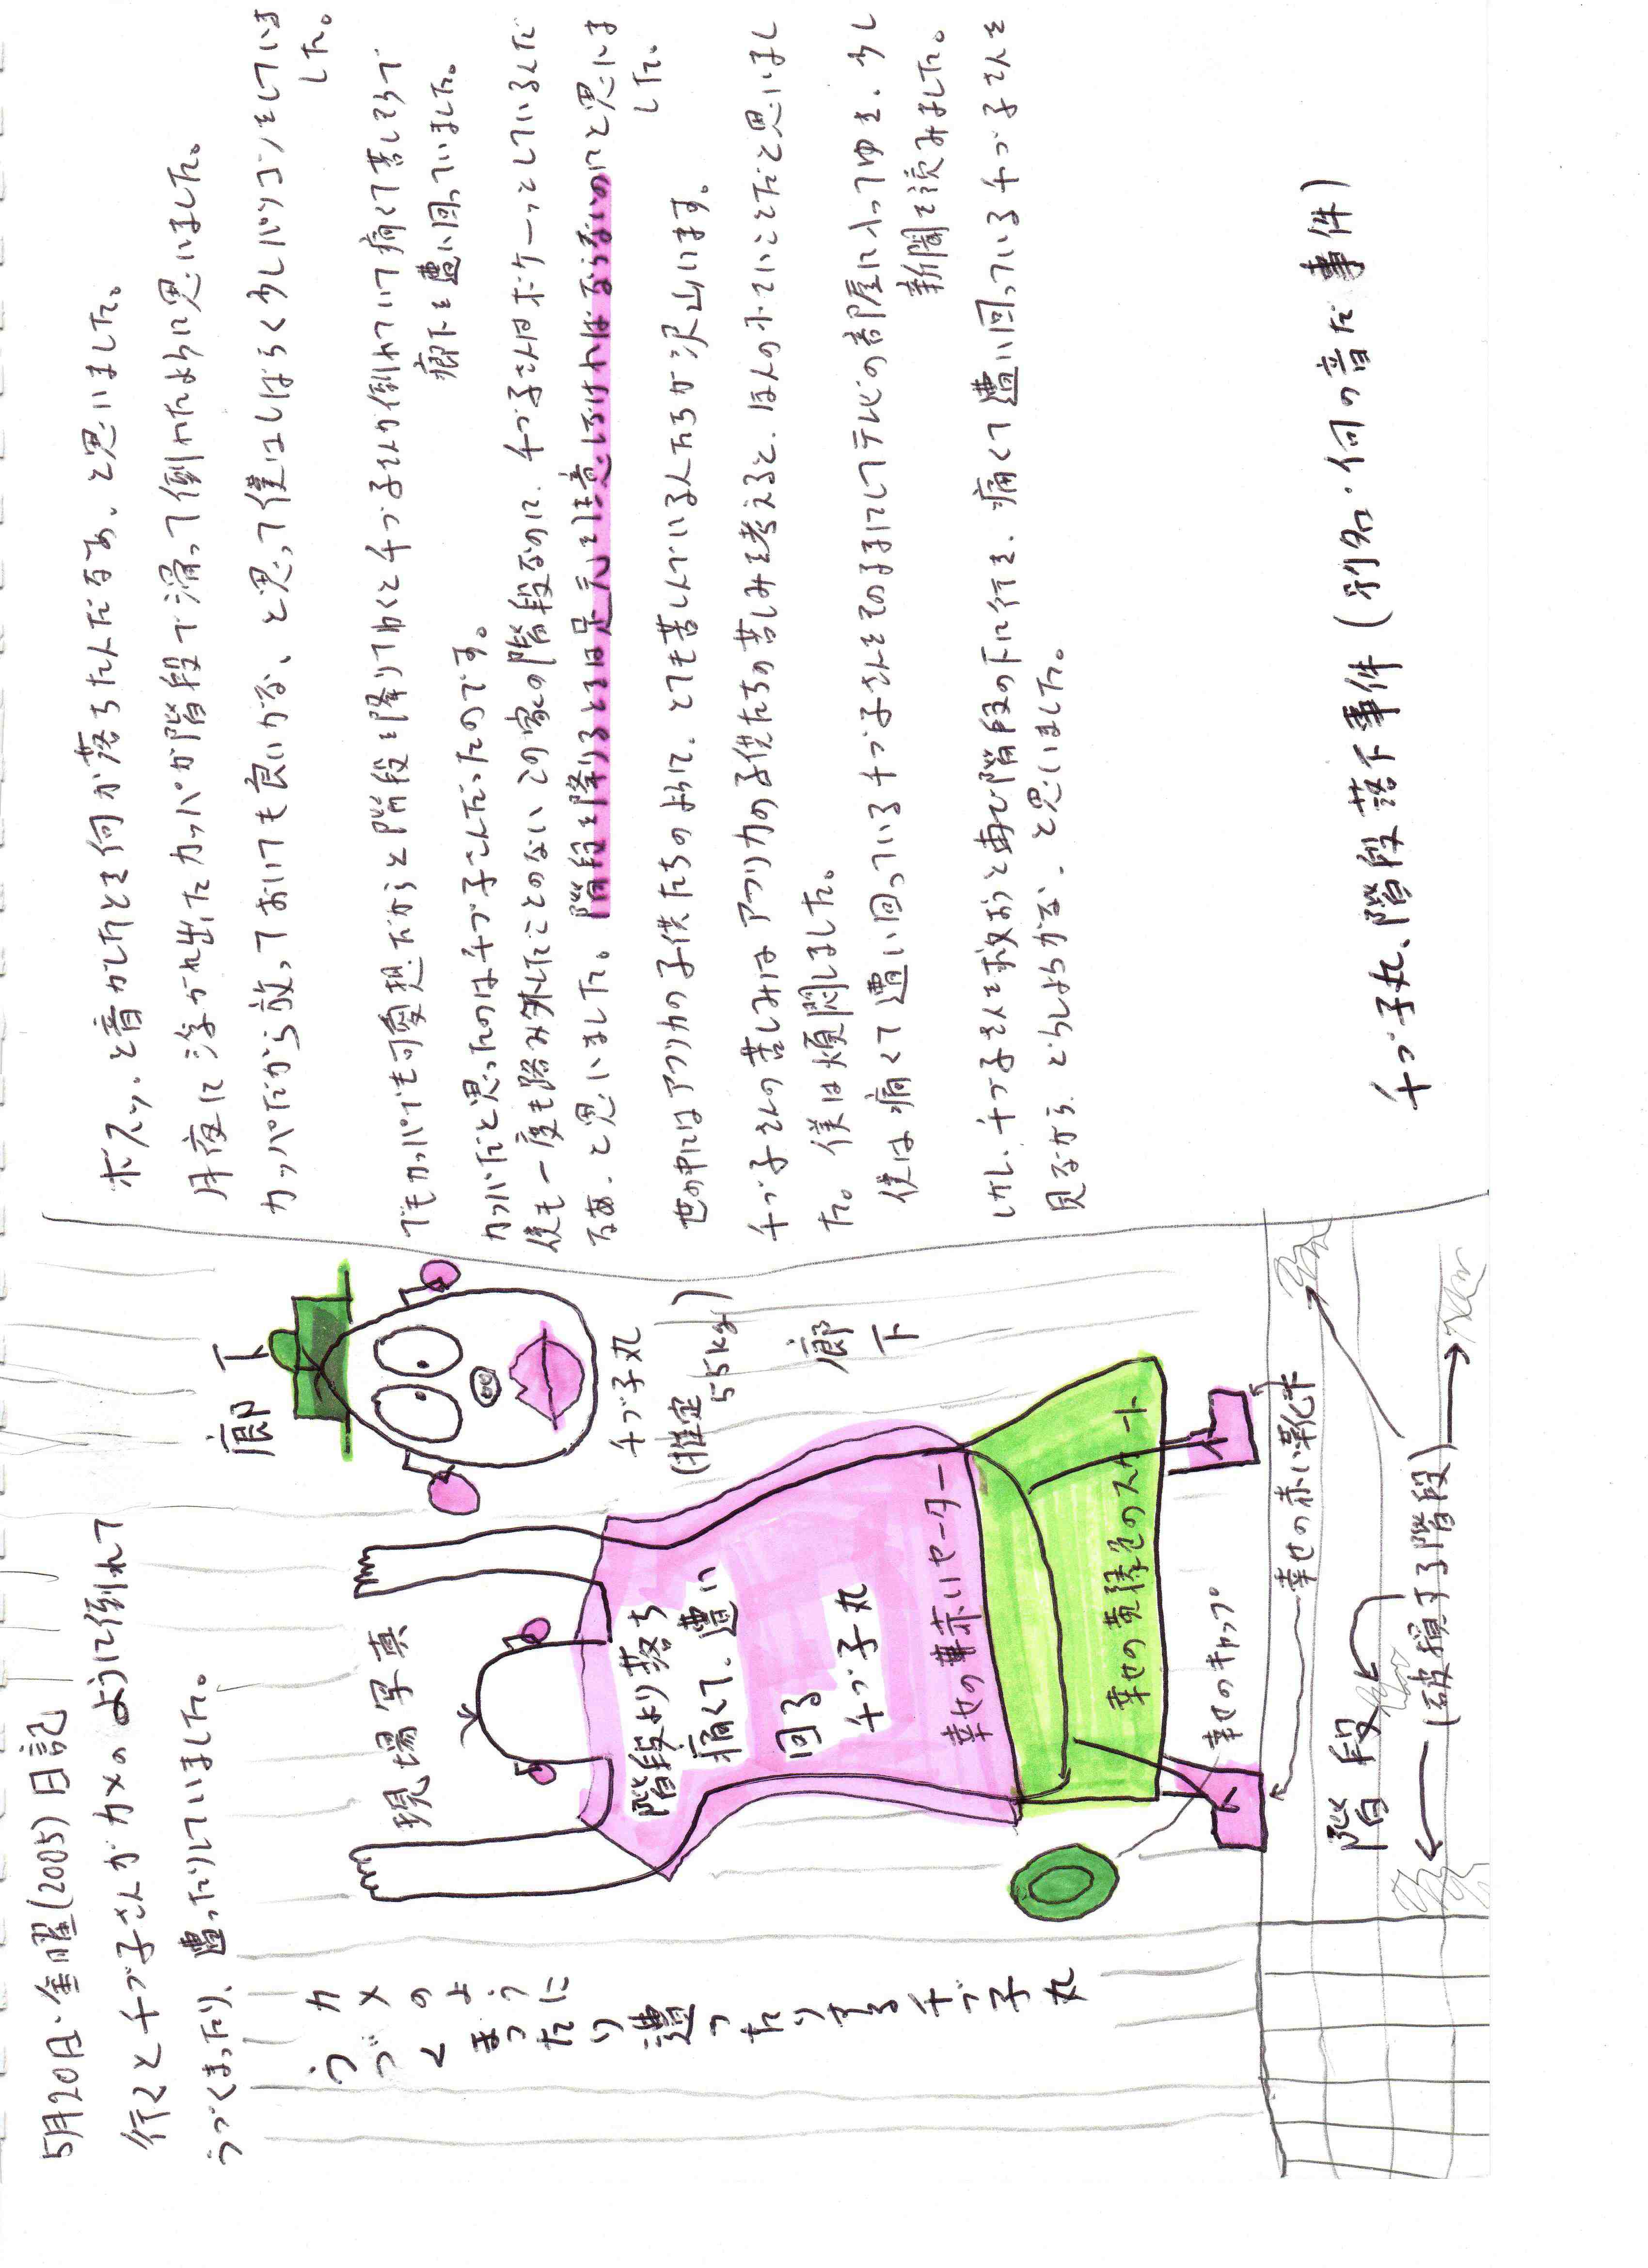 5月20日・金曜(2005)日記
行くとチブ子さんがカメのように倒れて
うづくまったり、遭ったりしていました。
現場写真
廊下
チブ子丸
(推定55kg)
廊下
階段より落ち
痛くて、遭い
回る
チブ子丸
幸せの赤いセーター
幸せの黄緑色のスカート
幸せのキャップ
幸せの赤い靴
カメのよう
うづくまったり遭ったりするチブ子丸
階段
(破損する階段)
ボスッ、と音がしたとき何か落ちたんだなあ、と思いました。
月夜に浮かれ出たカッパが階段で滑って倒れたように思いました。
カッパだから放っておいても良いかな、と思って僕はしばらく少しパソコンをしていました。
でもカッパでも可愛想だからと階段を降りてゆくとチブ子さんが倒れていて痛くて苦しそうで
廊下を遭い回っていました。
カッパだと思ったのはチブ子さんだったのです。
僕も一度も踏み外したことのないこの家の階段なのに、チブ子さんはボケーッとしているんだ
なあ、と思いました。階段を降りるときは足元を注意しなければならないのにと思いました。
世の中にはアフリカの子供たちのように、とても苦しんでいる人たちが沢山います。
チブ子さんの苦しみはアフリカの子供たちの苦しみを考えると、ほんの小さいことだと思いまし
た。僕は煩悶しました。
僕は痛くて遭い回っているチブ子さんをそのままにしてテレビの部屋に入ってゆき、少し
新聞を読みました。
しかし、チブ子さんを救おうと再び階段の下に行き、痛くて遭い回っているチブ子さんを
見ながら、どうしようかな、と思いました。
チブ子丸、階段落下事件(別名・何の音だ事件)